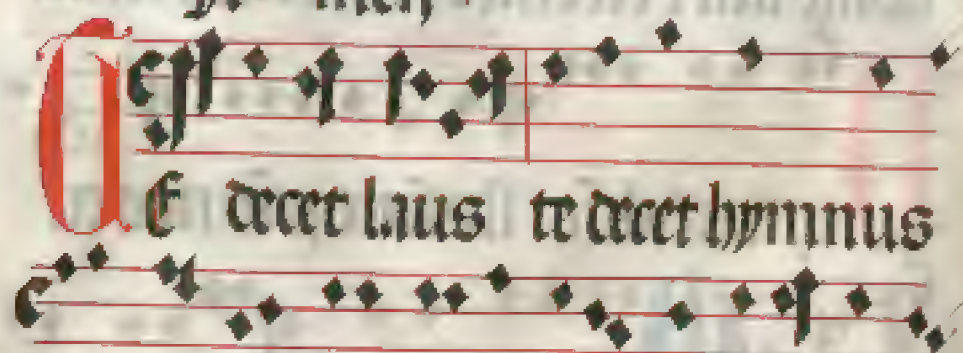 TE decet laus te decet hymnus